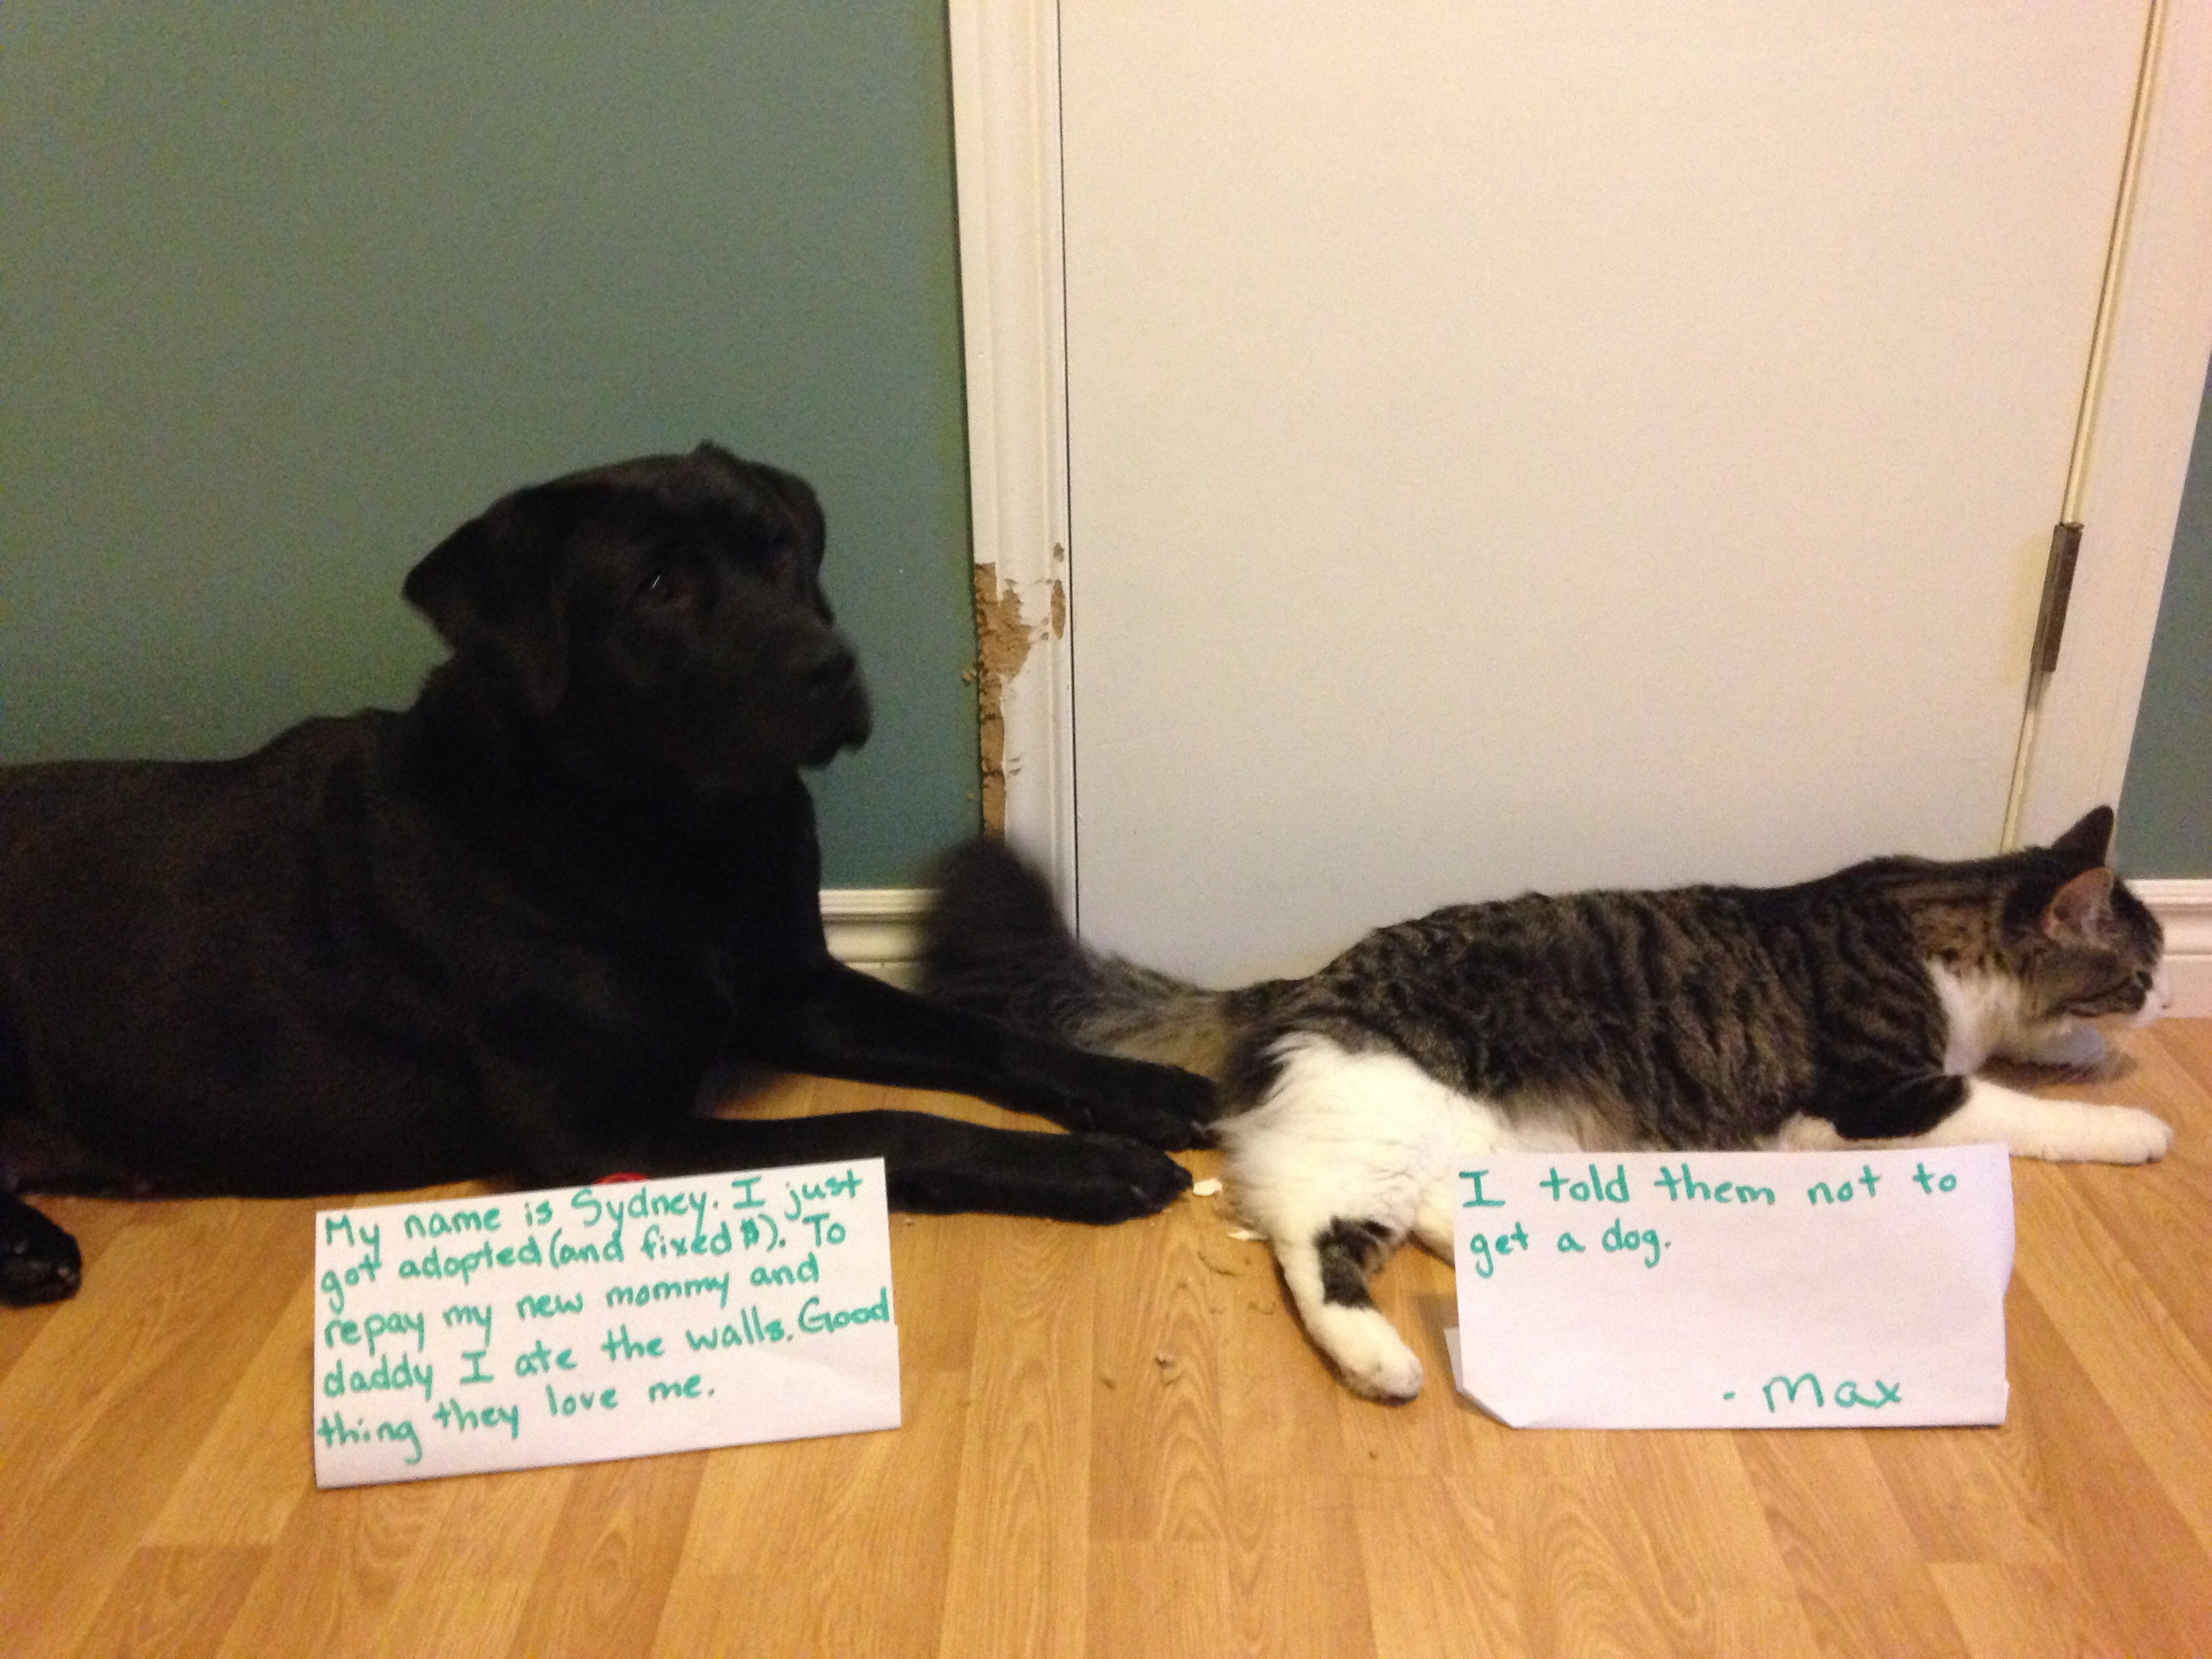 My name is Sydney. I just
got adopted (and fixed $). To
repay my new mommy and
daddy I ate the walls. Good
thing they love me.
I told them not to
get a dog.
- Max